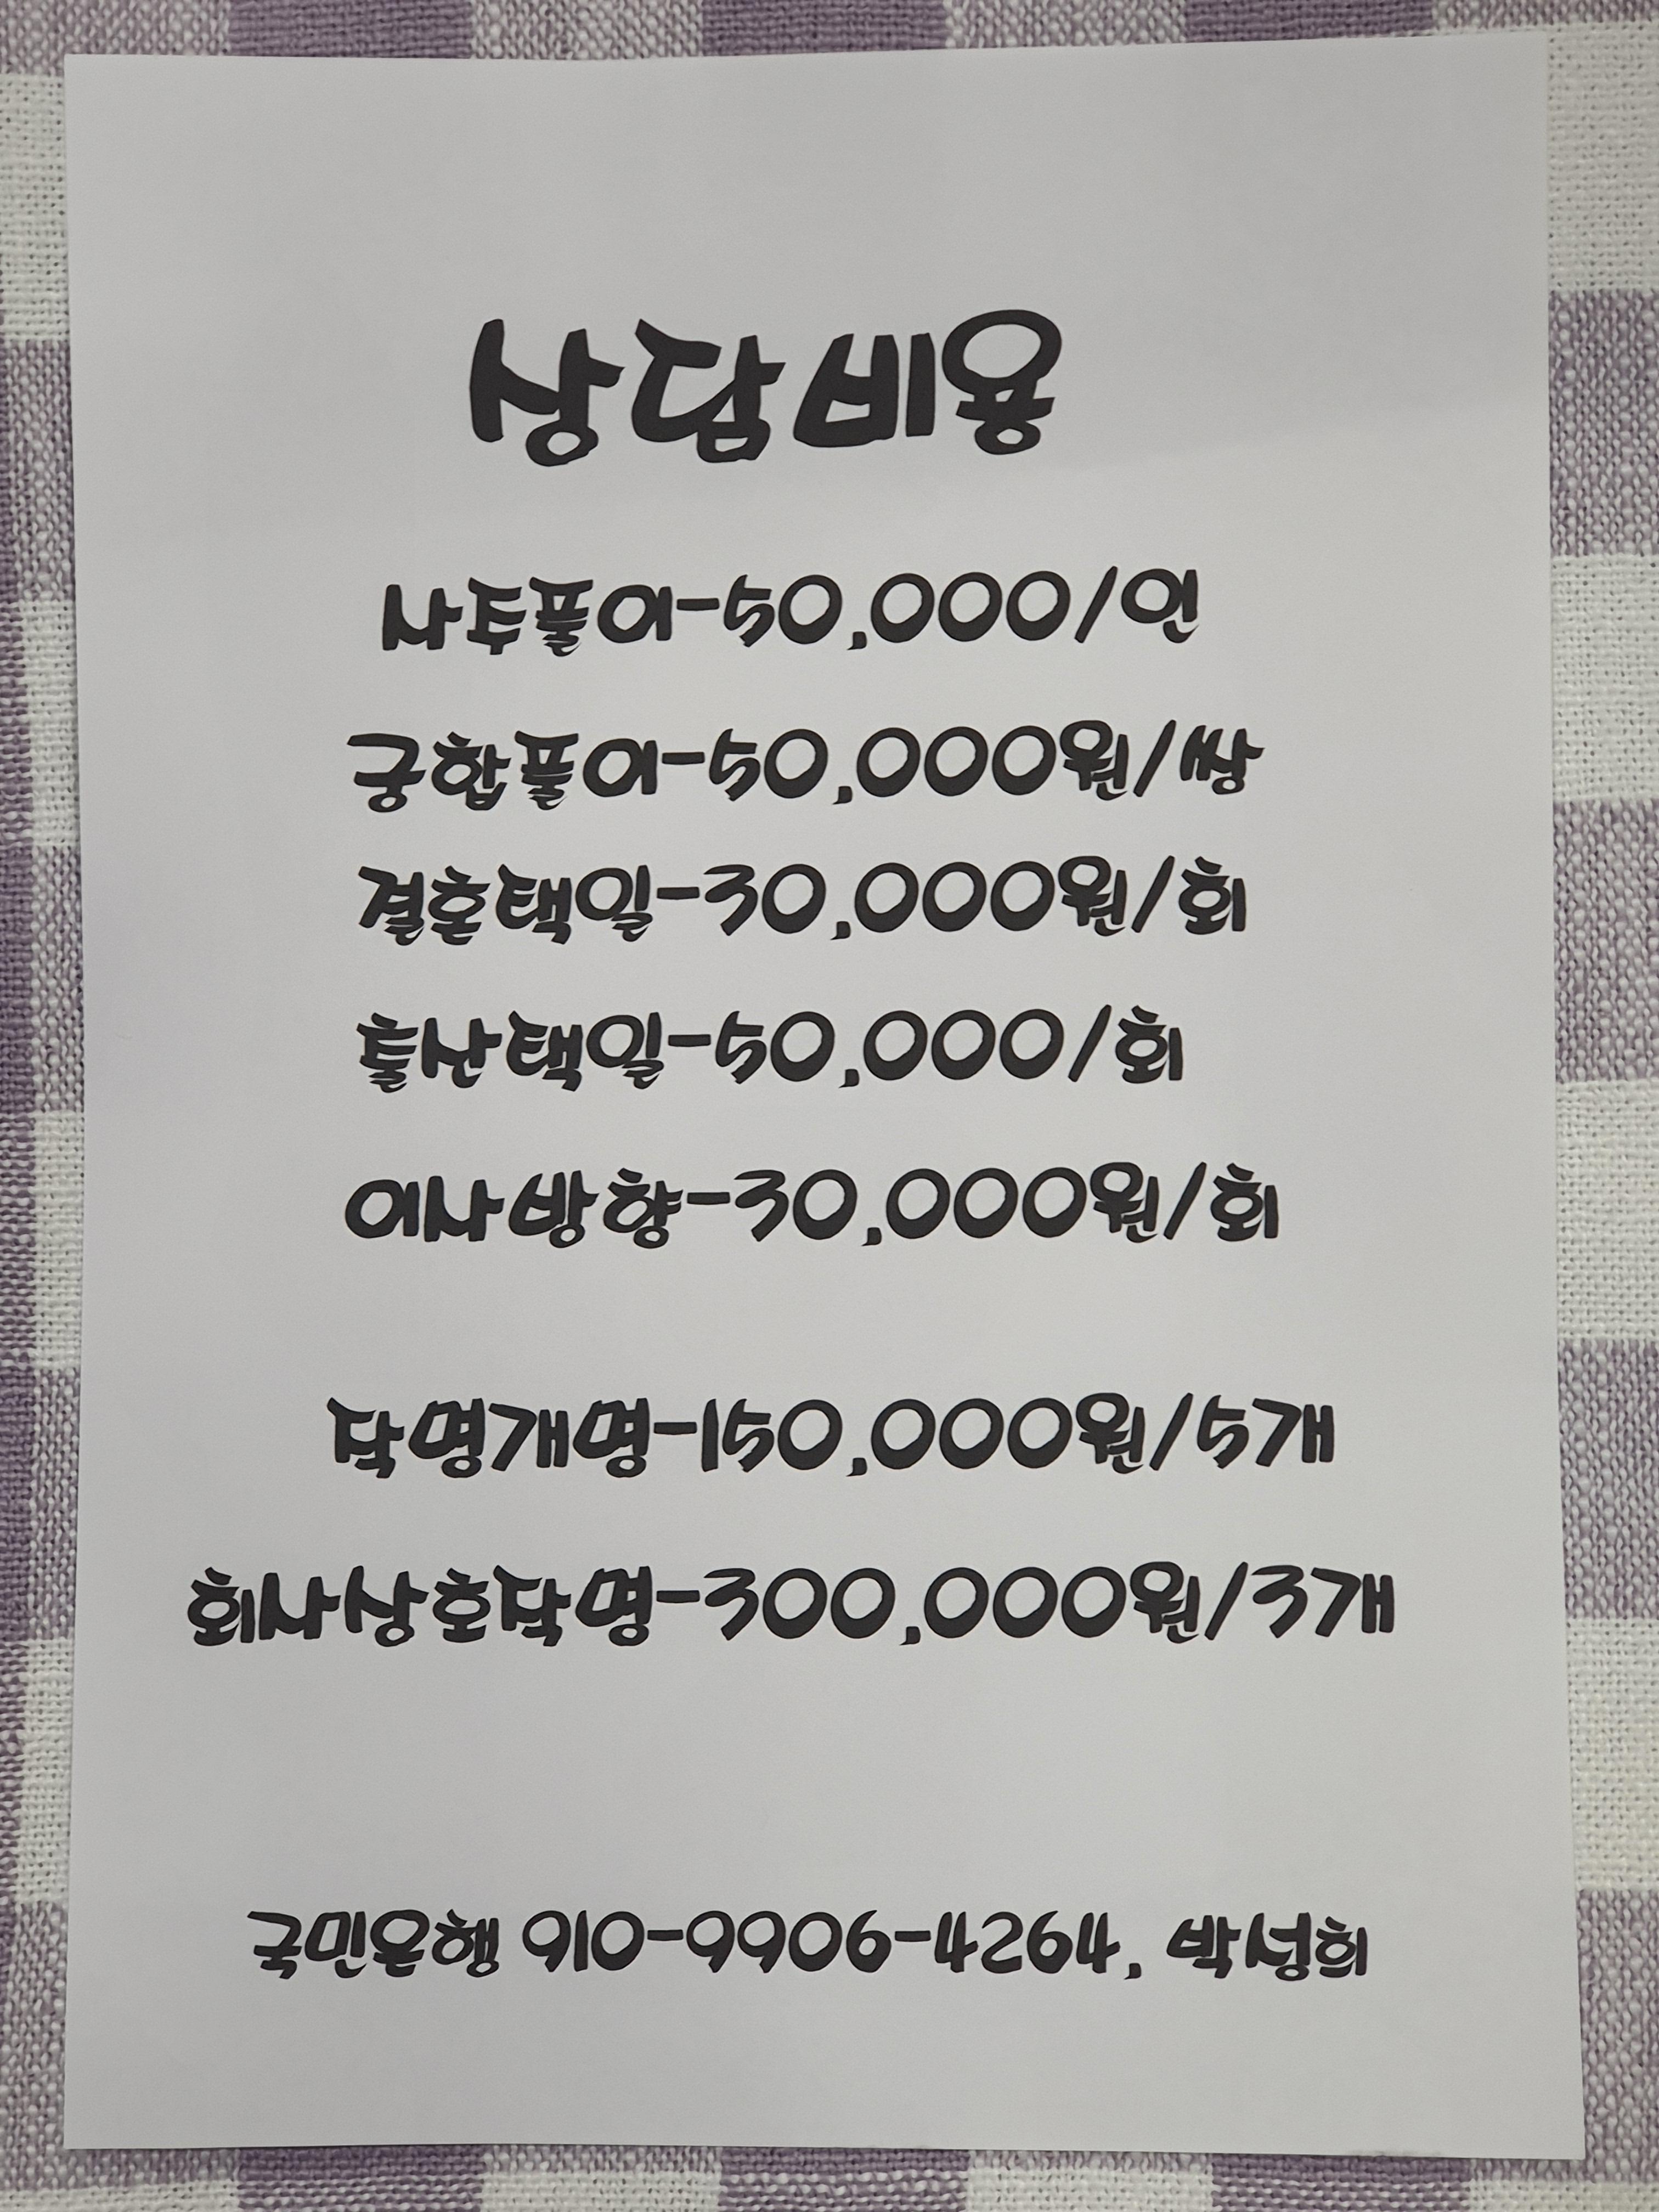 상담비용
사주풀이-50,000/인
궁합풀이-50,000원/쌍
결혼택일-30,000원/회
출산택일-50,000/회
이사방향-30,000원/회
작명개명-150,000원/5개
회사상호작명-300,000원/3개
국민은행 910-9906-4264, 박성희